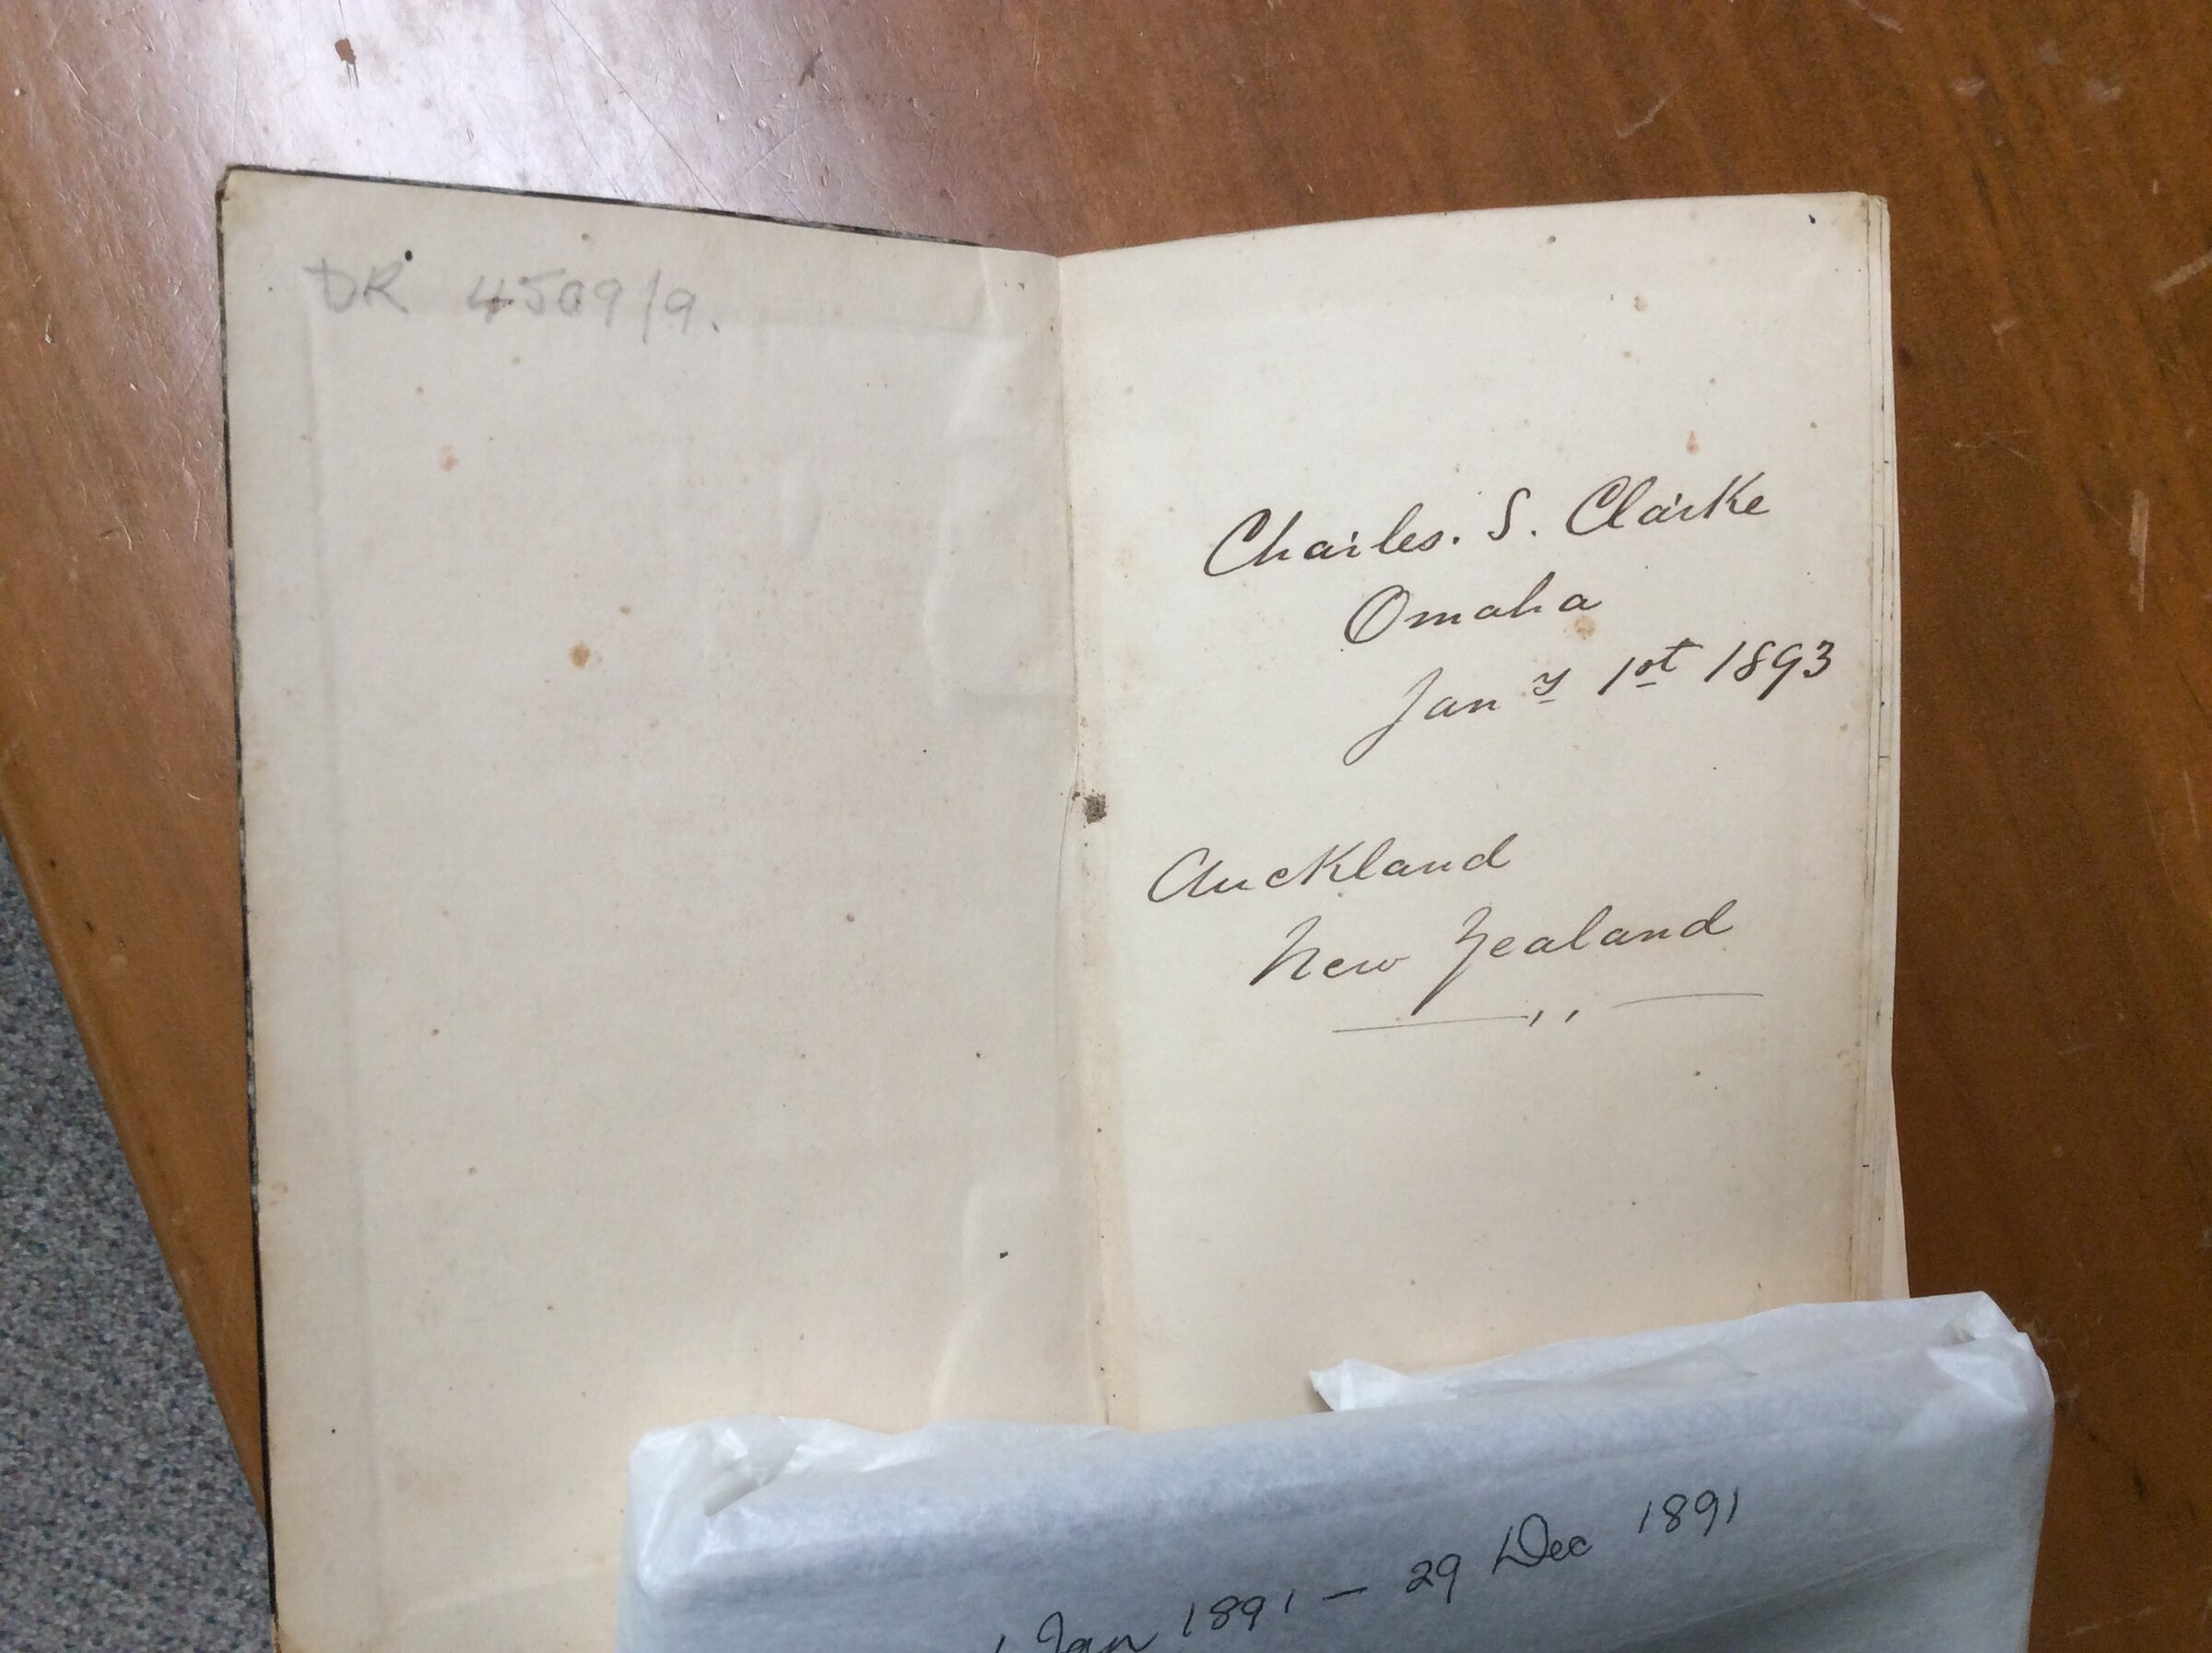 DR 4509/9.
Charles. S. Clarke
Omaha
Jany 1st 1893
Auckland
New Zealand
1 Jan 1891 - 29 Dec 1891